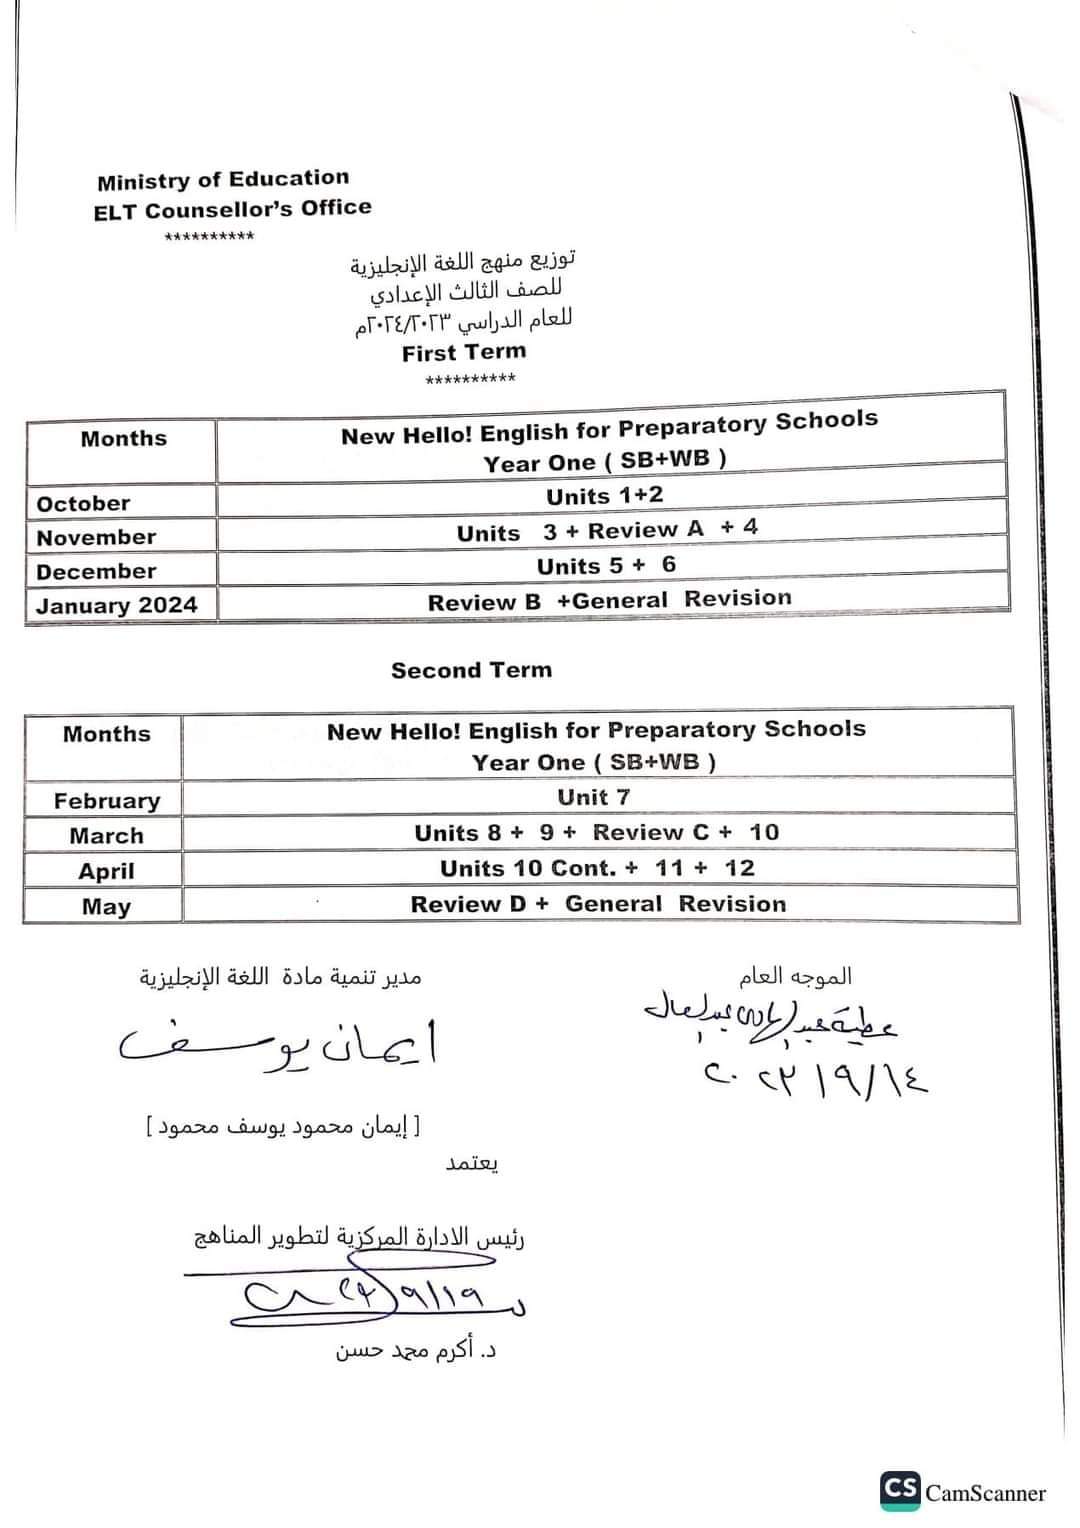 Ministry of Education
ELT Counsellor's Office
**********
توزيع منهج اللغة الإنجليزية
للصف الثالث الإعدادي
للعام الدراسي ٢٠٢٤/٢٠٢٣م
First Term
**********
Months New Hello! English for Preparatory Schools
Year One ( SB+WB )
October Units 1+2
November Units 3 + Review A + 4
December Units 5 + 6
January 2024 Review B +General Revision
Second Term
Months New Hello! English for Preparatory Schools
Year One ( SB+WB )
February Unit 7
March Units 8 + 9 + Review C + 10
April Units 10 Cont. + 11 + 12
May Review D + General Revision
الموجه العام
مدير تنمية مادة اللغة الإنجليزية
عطية عبد العال
ايمان يوسف
٢٠٢٣/٩/١٤
[ إيمان محمود يوسف محمود ]
يعتمد
رئيس الادارة المركزية لتطوير المناهج
٩/١٩
د. أكرم محمد حسن
CS CamScanner